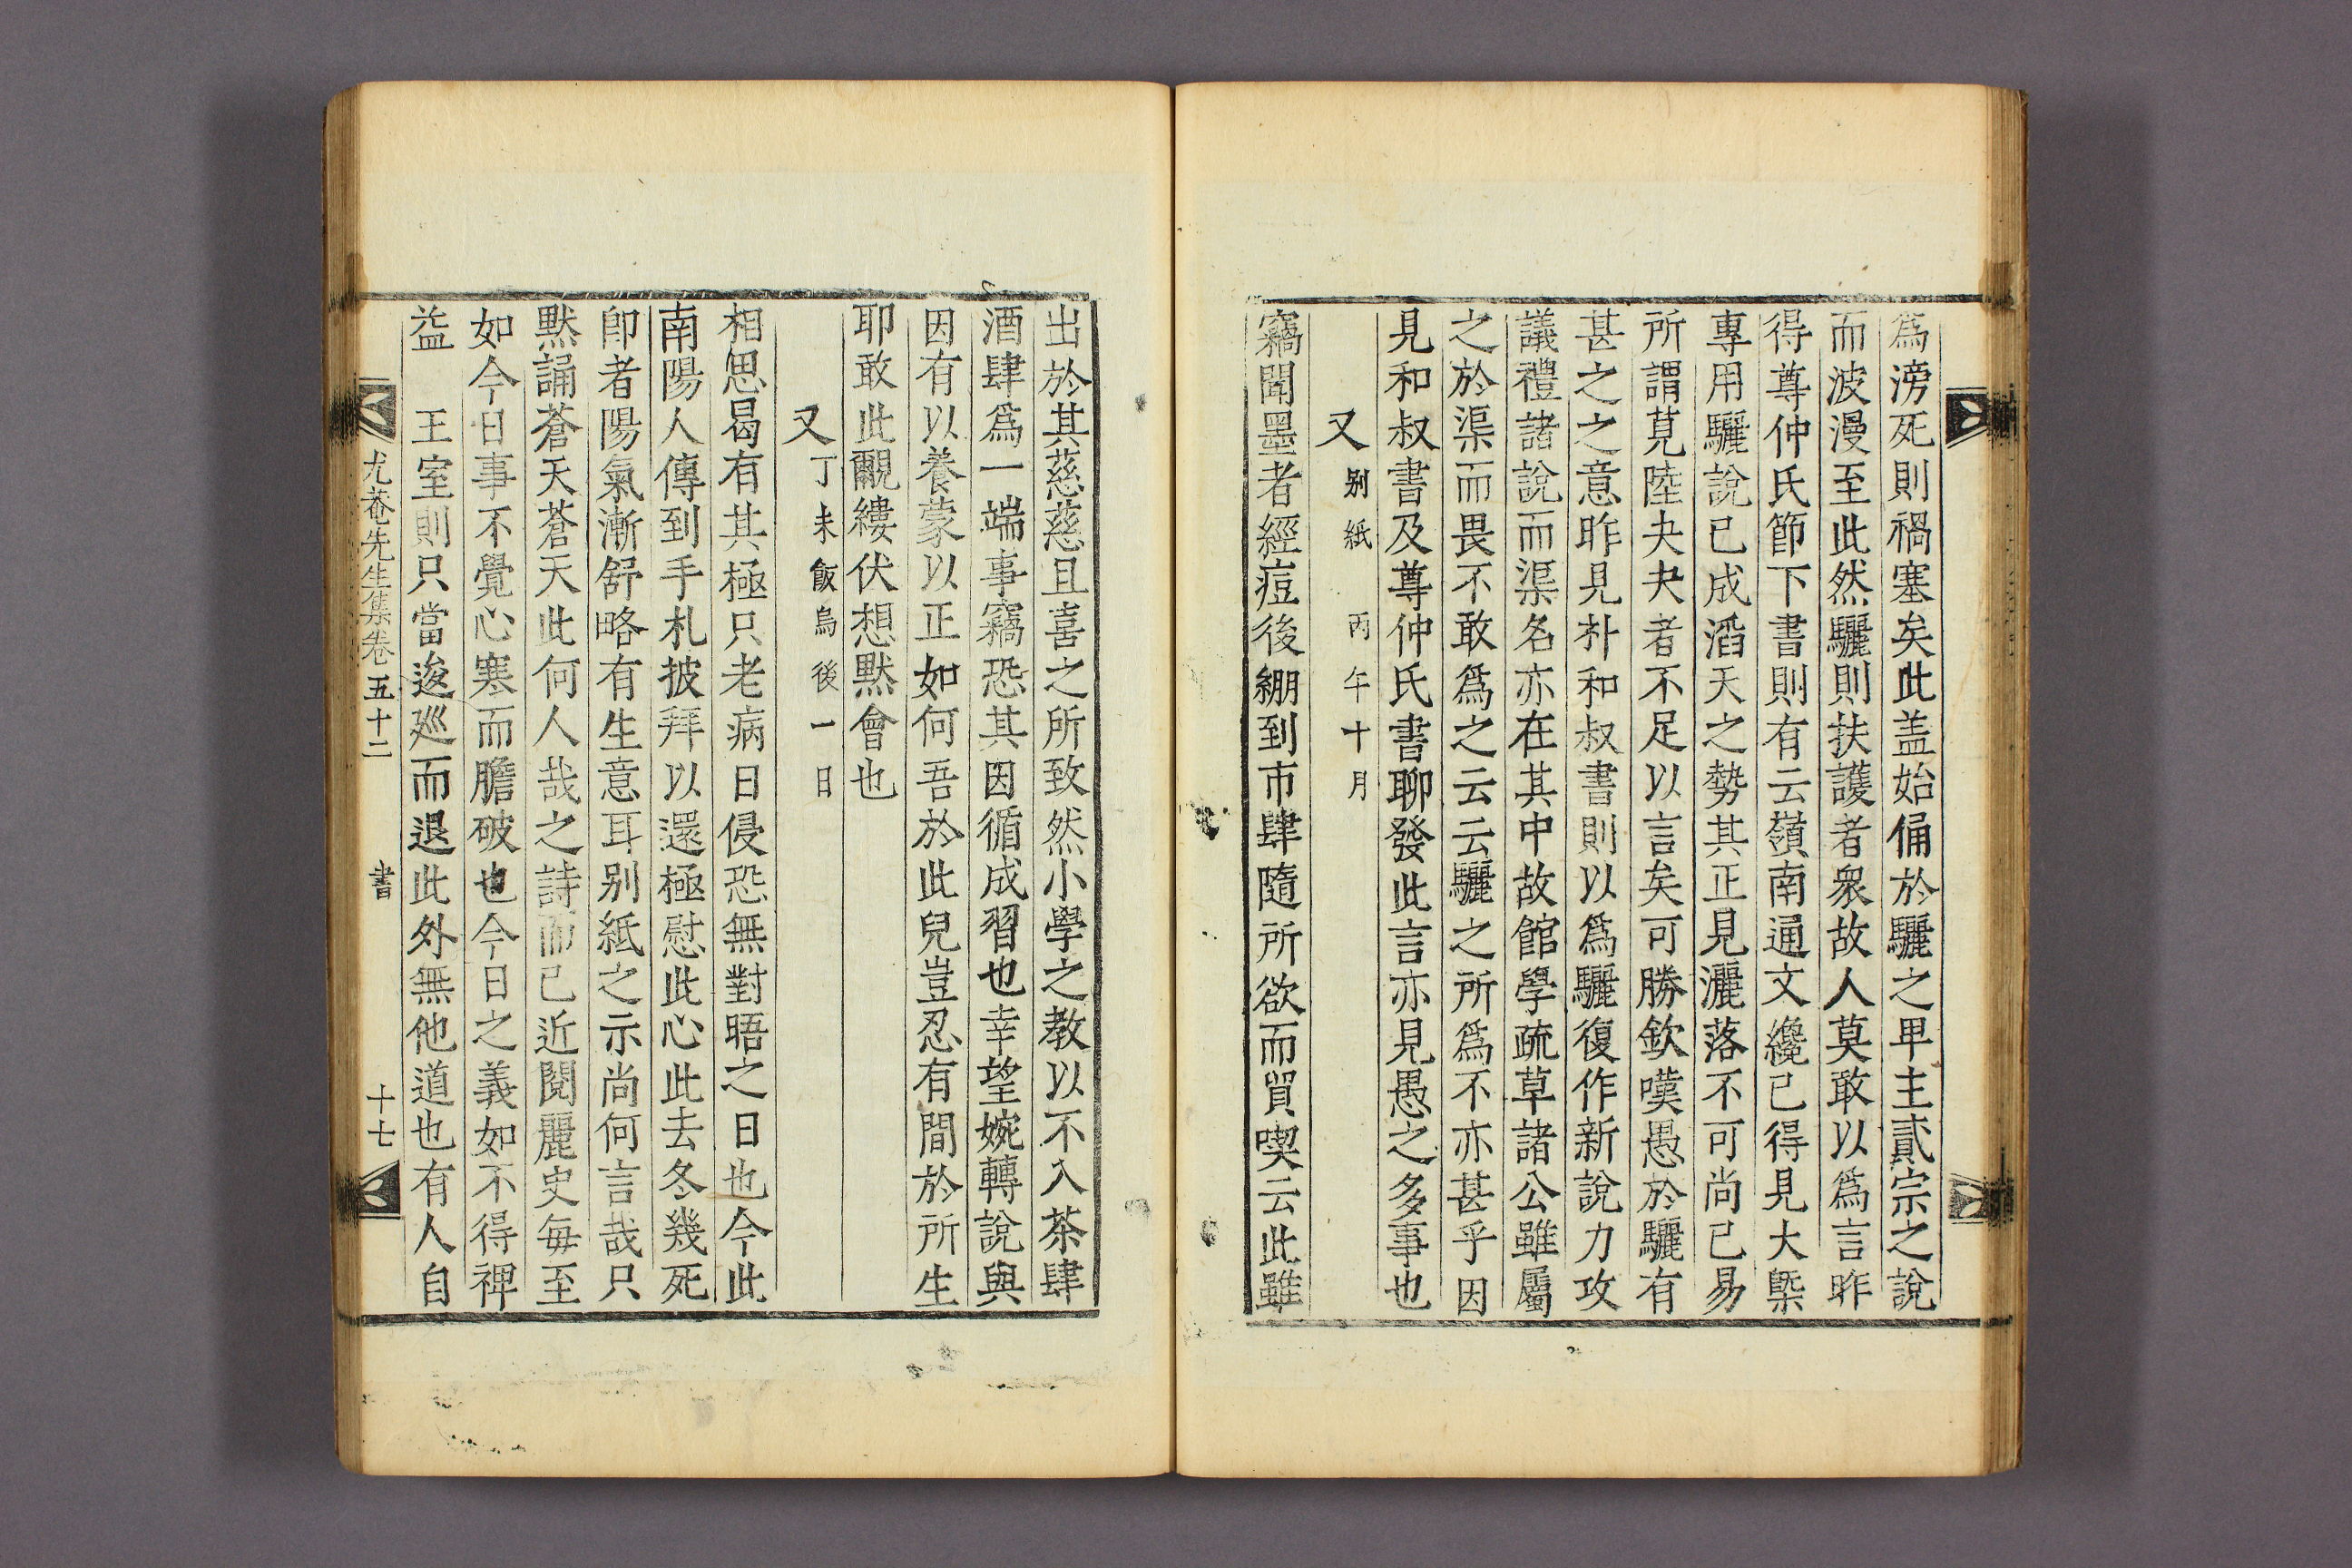 爲滂死則禍塞矣此盖始俑於驪之甲主貳宗之說
而波漫至此然驪則扶護者衆故人莫敢以爲言昨
得尊仲氏節下書則有云嶺南通文纔已得見大槩
專用驪說已成滔天之勢其正見灑落不可尚已易
所謂莧陸夬夬者不足以言矣可勝欽嘆愚於驪有
甚之之意昨見朴和叔書則以爲驪復作新說力攻
議禮諸說而渠名亦在其中故館學疏草諸公雖屬
之於渠而畏不敢爲之云云驪之所爲不亦甚乎因
見和叔書及尊仲氏書聊發此言亦見愚之多事也
又別紙 丙午十月
竊聞墨者經痘後綳到市肆隨所欲而貿喫云此雖
出於其慈慈且喜之所致然小學之教以不入茶肆
酒肆爲一端事竊恐其因循成習也幸望婉轉說與
因有以養蒙以正如何吾於此兒豈忍有間於所生
耶敢此覼縷伏想默會也
又丁未飯烏後一日
相思曷有其極只老病日侵恐無對晤之日也今此
南陽人傳到手札披拜以還極慰此心此去冬幾死
卽者陽氣漸舒略有生意耳別紙之示尚何言哉只
默誦蒼天蒼天此何人哉之詩而已近閱麗史每至
如今日事不覺心寒而膽破也今日之義如不得裨
益 王室則只當逡廵而退此外無他道也有人自
尤菴先生集卷五十二 書 十七